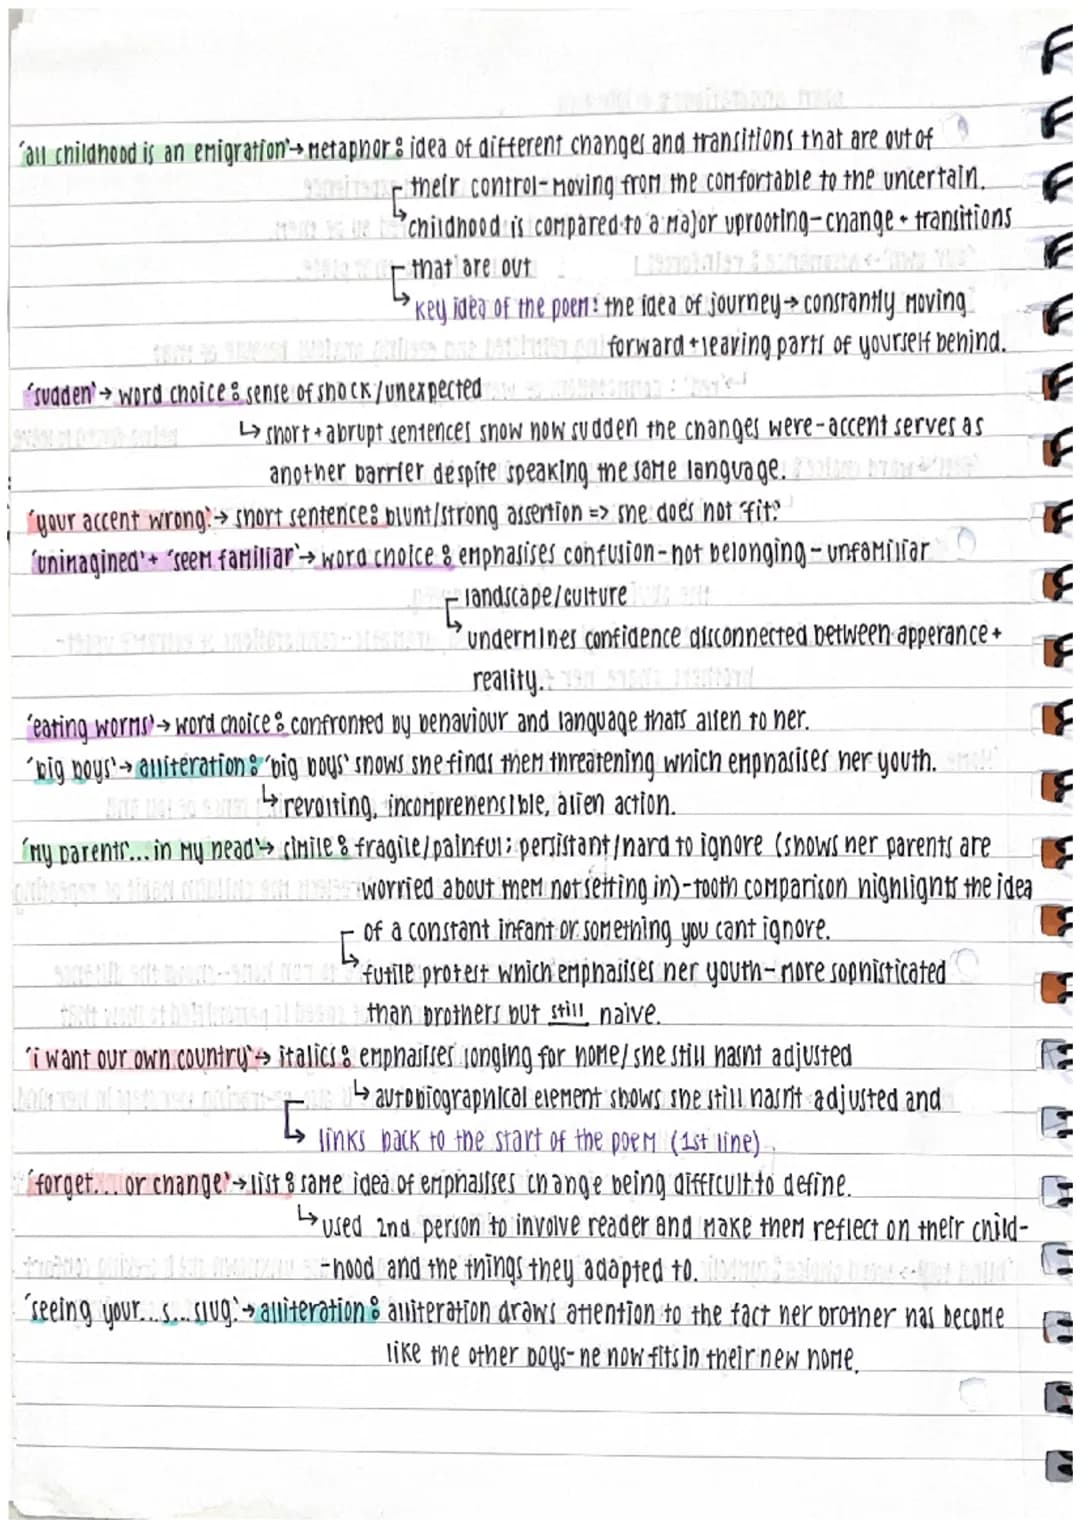 'all childhood is an emigration'→ metaphor: idea of different changes and transitions that are out of
their control-moving from the comfortable to the uncertain.
↳ childhood is compared to a major uprooting-change + transitions
that are out
↳ key idea of the poem: the idea of journey→ constantly moving
forward + leaving parts of yourself behind.
'sudden'→ word choice: sense of shock/unexpected
↳ short + abrupt sentences show how sudden the changes were-accent serves as
another barrier despite speaking the same language.
'your accent wrong.'→ short sentence: blunt/strong assertion => she does not "fit"
'unimagined' + 'seem familiar'→ word choice: emphasises confusion-not belonging-unfamiliar
landscape/culture
↳ undermines confidence disconnected between apperance +
reality.
'eating worms'→ word choice: confronted by behaviour and language thats alien to her.
'big boys'→ alliteration: 'big boys' shows she finds them threatening which emphasises her youth.
↳ revolting, incomprehensible, alien action.
'my parents'... in my head'→ cimile: fragile/painful: persistant/hard to ignore (shows her parents are
worried about them not setting in)-tooth comparison highlights the idea
of a constant infant or something you cant ignore.
↳ futile protest which emphasises her youth-more sophisticated
than brothers but still naive.
'i want our own country'→ italics: emphasises longing for home/she still hasnt adjusted
↳ autobiographical element shows she still hasn't adjusted and
↳ links back to the start of the poem (1st line)
'forget... or change'→ list: same idea of emphasises change being difficult to define.
↳ used 2nd person to involve reader and make them reflect on their child-
-hood and the things they adapted to.
'seeing your...s...slug.'→ alliteration: alliteration draws attention to the fact her brother has become
like the other boys-he now fits in their new home.